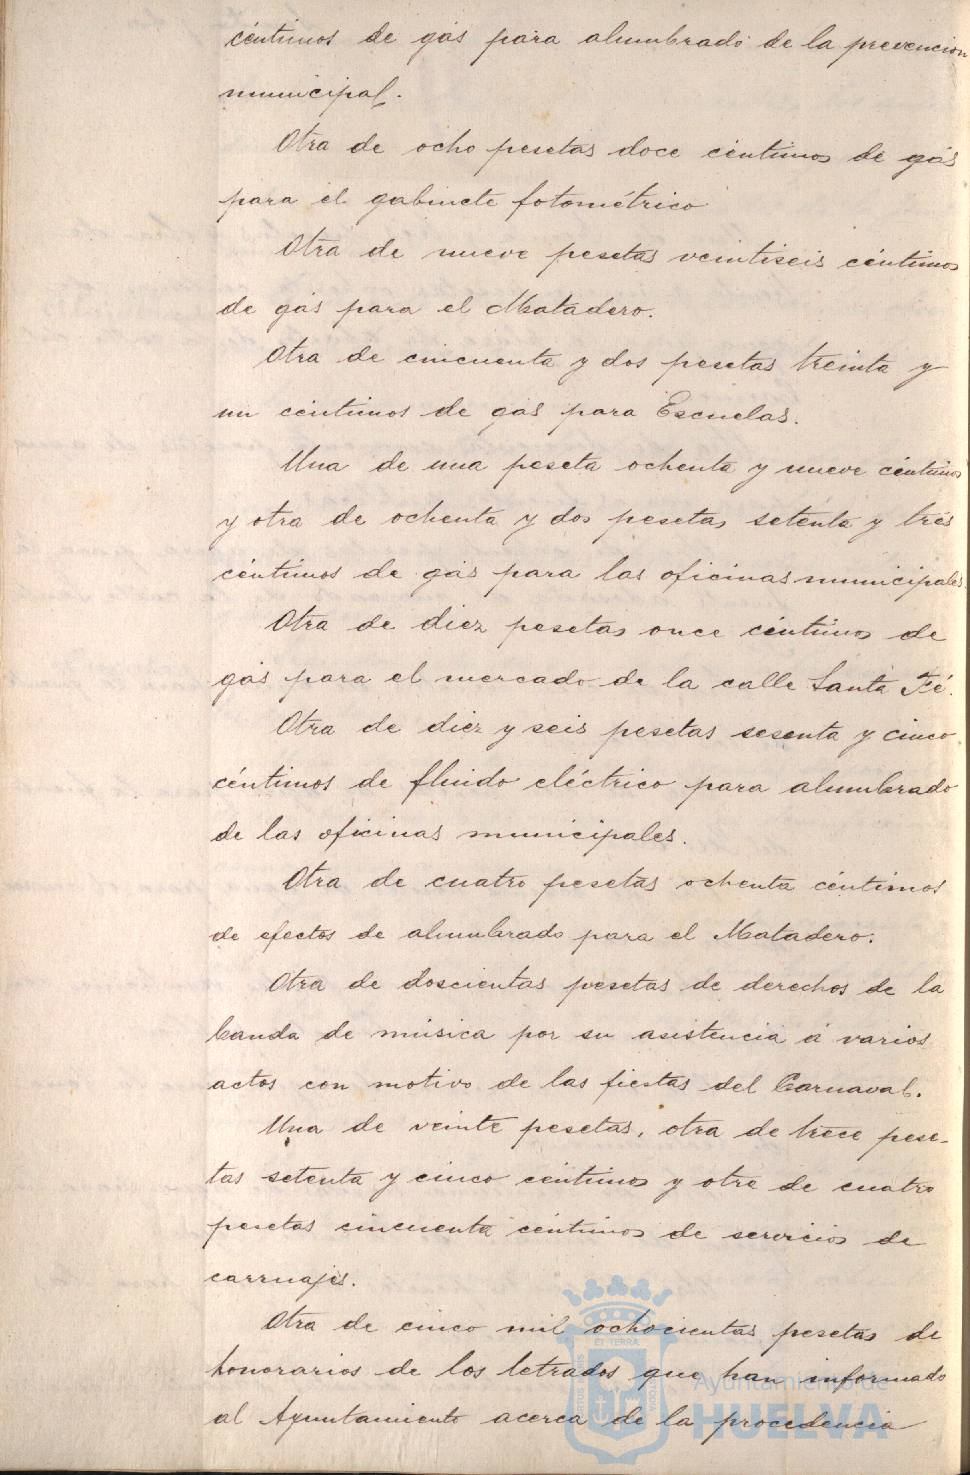 céntimos de gas para alumbrado de la prevencion
municipal.
Otra de ocho pesetas doce céntimos de gás
para el gabinete fotométrico
Otra de nueve pesetas veintiseis céntimos
de gás para el Matadero.
Otra de cincuenta y dos pesetas treinta y
un céntimos de gas para Escuelas.
Una de una peseta ochenta y nueve céntimos
y otra de ochenta y dos pesetas setenta y tres
céntimos de gás para las oficinas municipales.
Otra de diez pesetas once céntimos de
gás para el mercado de la calle Santa Fé.
Otra de diez y seis pesetas sesenta y cinco
céntimos de fluido eléctrico para alumbrado
de las oficinas municipales.
Otra de cuatro pesetas ochenta céntimos
de efectos de alumbrado para el Matadero.
Otra de doscientas pesetas de derechos de la
banda de música por su asistencia á varios
actos con motivo de las fiestas del Carnaval.
Una de veinte pesetas, otra de trece pese-
tas setenta y cinco céntimos y otra de cuatro
pesetas cincuenta céntimos de servicios de
carruajes.
Otra de cinco mil ochocientas pesetas de
honorarios de los letrados que han informado
al Ayuntamiento acerca de la procedencia
Ayuntamiento de
HUELVA